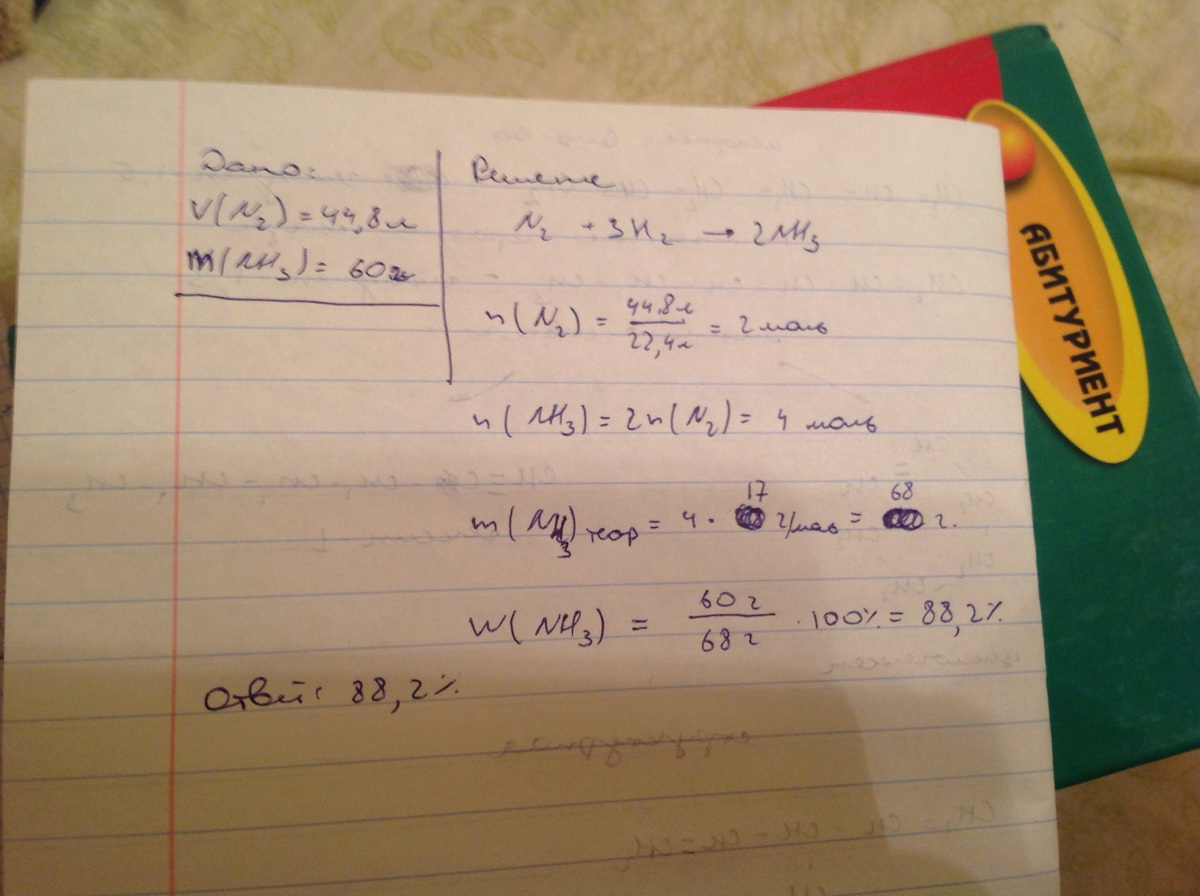 Дано:
V(N₂) = 44,8 л
m(NH₃) = 60 г
Решение
N₂ + 3H₂ → 2NH₃
n(N₂) = 44,8 л / 22,4 л = 2 моль
n(NH₃) = 2n(N₂) = 4 моль
m(NH₃)теор = 4 · 17 г/моль = 68 г.
W(NH₃) = 60 г / 68 г · 100% = 88,2%
Ответ: 88,2%
АБИТУРИЕНТ